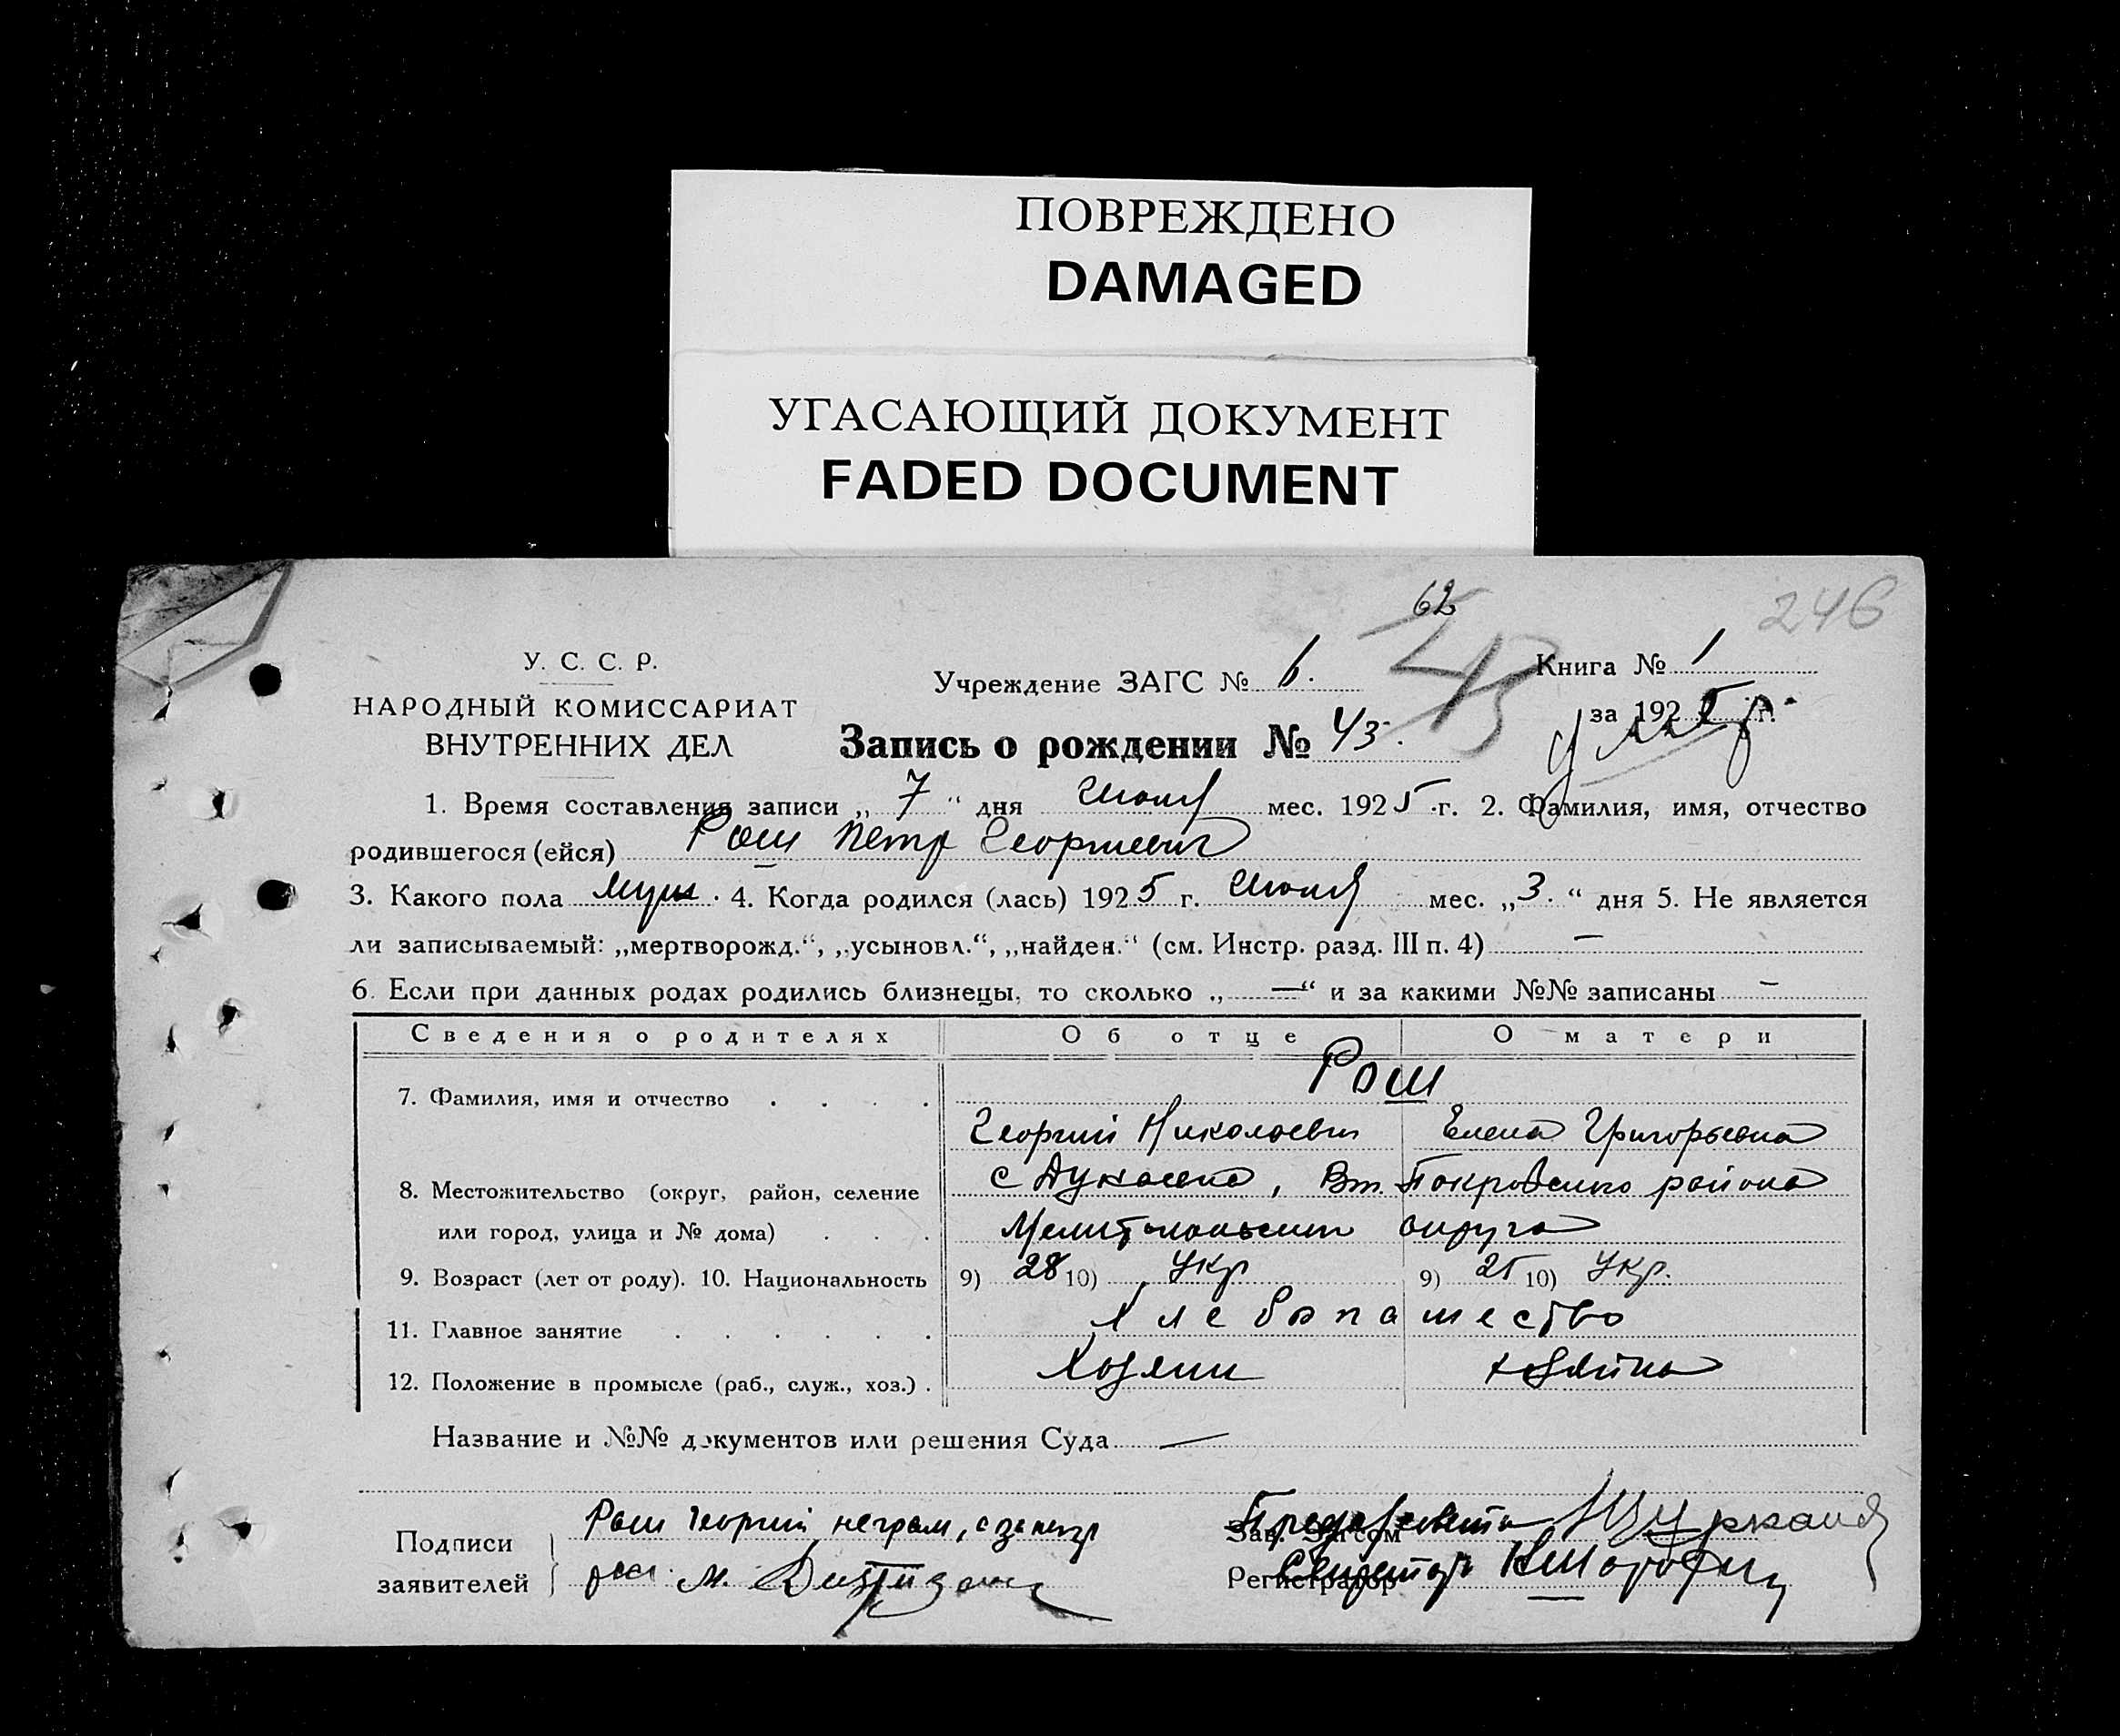 ПОВРЕЖДЕНО
DAMAGED
УГАСАЮЩИЙ ДОКУМЕНТ
FADED DOCUMENT
62
246
У. С. С. Р.
НАРОДНЫЙ КОМИССАРИАТ
ВНУТРЕННИХ ДЕЛ
Учреждение ЗАГС № 6.
Книга № 1
за 1925 г.
Запись о рождении № 43.
1. Время составления записи „ 7 “ дня мес. 1925 г. 2. Фамилия, имя, отчество
родившегося (ейся) Рош Петр Георгиевич
3. Какого пола муж. 4. Когда родился (лась) 1925 г. мес. „3.“ дня 5. Не является
ли записываемый: „мертворожд.“, „усыновл.“, „найден.“ (см. Инстр. разд. III п. 4) —
6. Если при данных родах родились близнецы, то сколько „—“ и за какими №№ записаны —
Сведения о родителях Об отце О матери
Рош
7. Фамилия, имя и отчество
Георгий Николаевич Елена Григорьевна
8. Местожительство (округ, район, селение с Дунаевка, Вт. Покровского района
или город, улица и № дома) Мелитопольского округа
9. Возраст (лет от роду). 10. Национальность 9) 28 10) Укр 9) 25 10) Укр.
11. Главное занятие Хлебопашество
12. Положение в промысле (раб., служ., хоз.) Хозяин хозяйка
Название и №№ документов или решения Суда —
Подписи
заявителей
Рош Георгий неграм, а за него
рас. М.
Зав. Загсом Пред. совета
Регистратор Секретарь